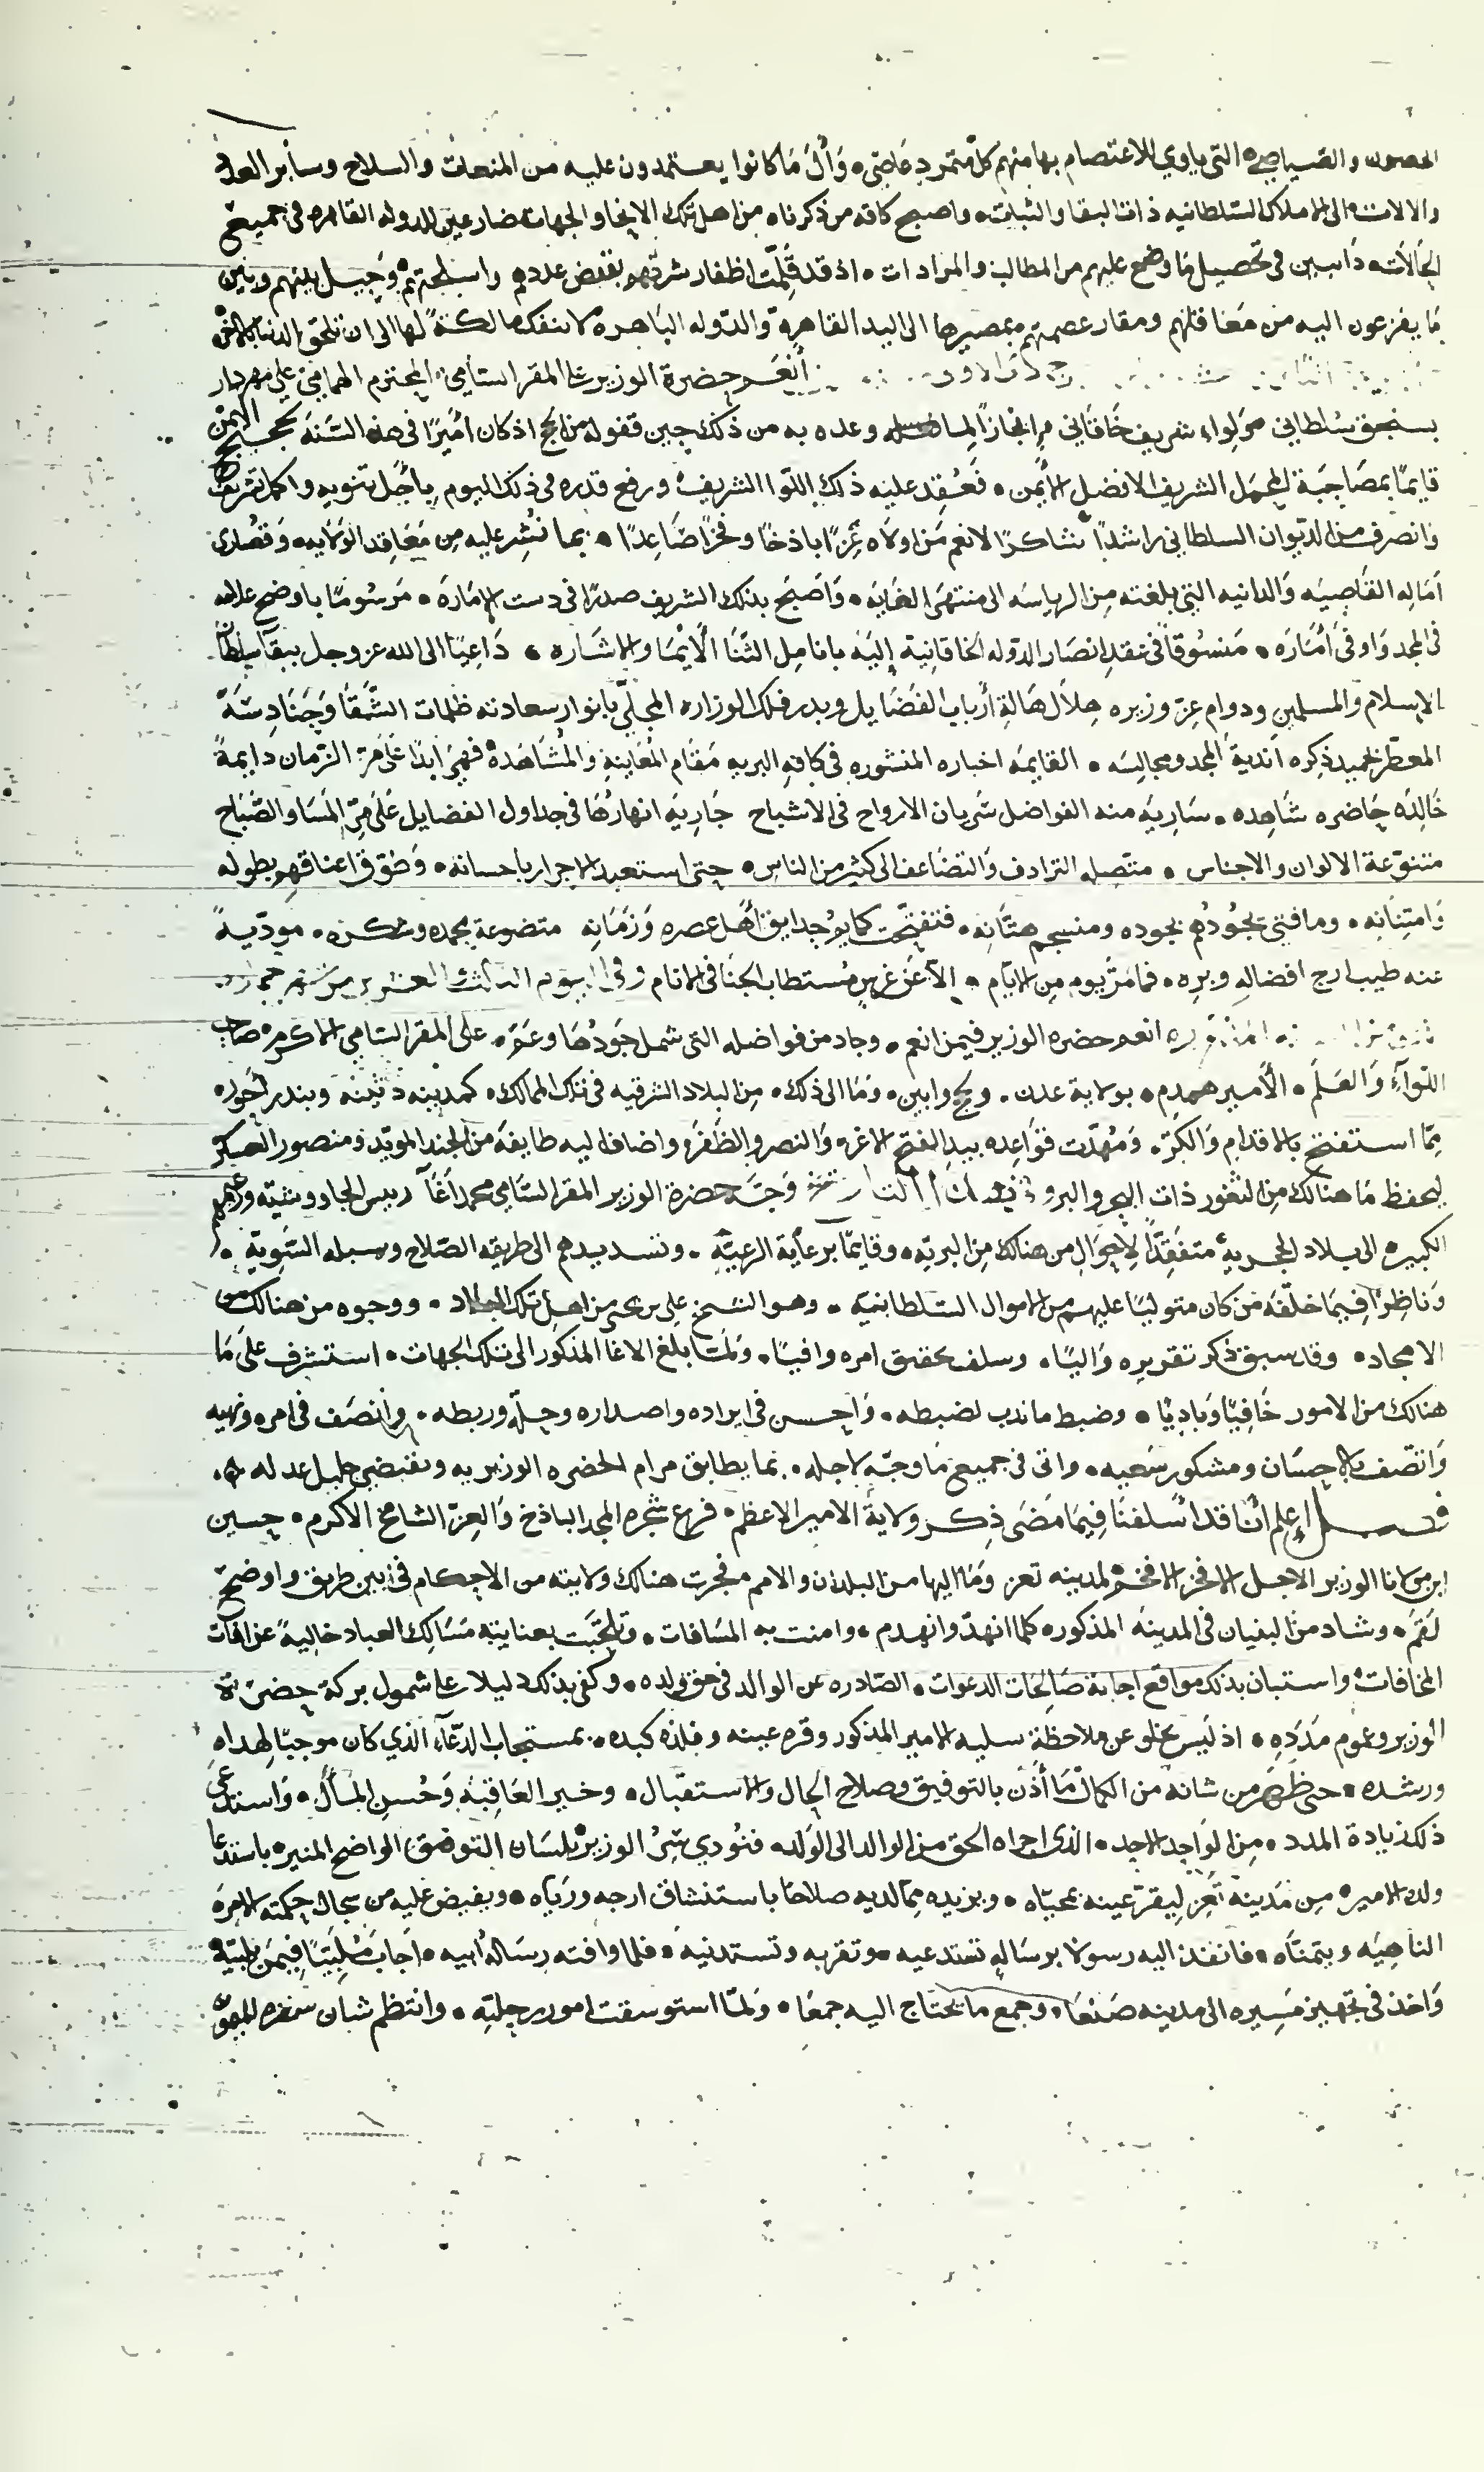 الحصون والصياصي التي ياوي للاعتصام بها منهم كل متمرد عاصي وآل ما كانوا يعتمدون عليه من المنعات والسلاح وسأير العدد
والالات الى الاملاك السلطانيه ذات البقا والثبات واصبح كافه من ذكرناه من اهل تلك الانحا والجهات ضارعين للدوله القاهره في جميع
الحالات دَاببين في تحصيل ما وضع عليهم من المطالب والمرادات اذ قد قلمت اظفار شرتهم بقبض عددهم واسلحتهم وَحِيل بينهم وبين
مَا يفزعون اليه من معاقلهم ومقار عصمتهم بمصيرها الى اليد القاهرة والدوله الباهرة لا تنفك مالكة لها الى ان تلحق الدنيا بالاخره
جمادى الاولى أنعم حضرة الوزير على المقر السأمي المحترم الهمامي علي مهردار
بسنجق سلطاني ولواء شريف خاقاني إنجازًا لما وعده به من ذلك حين قفوله من الحج اذ كان اميرًا في هذه السنه لحجيج اليمن
قايمًا بمصاحبة المحمل الشريف الافضل الأيمن فَعُقِد عليه ذلك اللوا الشريف ورفع قدره في ذلك اليوم بأجَل تنويه واكمل تشريف
وانصرف من الديوان السلطاني راشدًا شاكرًا لانعم مَن اولاه عِزًا باذخًا وفخرًا صَاعِدًا بما نُشِر عليه مِن مَعَاقِد الوَلايه وَقصارى
آمَالِه القَاصِيَه وَالدانيه التي بلغته مِن الرياسَه الى منتهى الغايه وَاصبَح بذلك الشريف صدرًا في دست الإمَارَه مَرسُومًا باوضح علامه
في المجد وَاوفى أَمَارَه مَنسُوقًا في عقد انصار الدوله الخاقانية إليَه بانامِل الثنَا الأيمَا والاشَاره دَاعِيًا الى الله عز وجل ببقآ سلطان
الاسلام والمسلمين ودوام عِز وزيره هِلال هَالةِ أرباب الفَضَايل وبدر فلك الوزاره المجلّي بانوار سعادته ظلمات الشَّقَا وَحِنَادِسَهُ
المعطّر بحميد ذِكره اندية المجد ومجالِسَه القايمه اخباره المنشوره في كافه البريه مَقَام المُعَاينهِ والمُشَاهَدة فهي ابدًا عَلى مَرّ الزمان دايمةً
خَالِدَه حَاضره شَاهِده سَاريَه منه الفواضل سَريان الارواح في الاشباح جَاريَه انهارُهَا في جداول الفضايل عَلَى مَرِّ المَسَا والصّبَاح
متنوّعة الالوان والاجناس متّصِله الترادف وَالتضَاعف الى كثير من الناس حتى استعبد الاحرار باحسانه وَطوّق اعناقهم بطوله
وَامتِنَانه وما فتى يَجُودُهم بجوده ومنسجم هتَّانِه فتفتّحت كمايمُ حدايق أهل عصره وَزَمَانِه متضوعة بحمده وشكره مودّيةً
عنه طيب ارج افضالِهِ وبره فمامَرّ يوم مِن الايّام الآ عَن غرسٍ مُستطاب الجنَا في الانام وفي اليوم الثالث العشرين من شهر جمادى
المذكوره انعم حضره الوزير فيمن انعم وجاد من فواضله التي شمل جَودُهَا وعَمَّ على المقر السَامي الاكرم صاحب
اللوآءِ وَالعَلَم الأمير همدم بولاية عدن ولحج وابين وَمَا الى ذلك مِن البلاد الشرقيه في تلك الممالك كمدينه دثينه وبندر احور
مِمّا استفتح بالاقدام وَالكرّ وَمُهّدَت قوَاعِده بيد الفتح الاغر وَالنصر والظَفَر واضاف اليه طايفة من الجند المويّد ومنصور العسكر
ليحفظ مَا هنالك مِن الثغور ذات البحر والبر وَجَّه حضرة الوزير المقر السَّامي محمد أغَا رييس الجاووشيّه وزعيمهم
الكبير الى بلاد الحجريه متفقِّدًا لاحوَالِ من هنالك مِن البريّه وقايمًا برعاية الرعيّة وتسديدهم الى طريقه الصّلاح وسبله السّويّة
وَناظرًا فِيمَا خلّفَه مَن كان متوليًا عليهم من الاموال السلطانيّه وهو الشيخ علي بن يحيى من اهل تلك البلاد ووجوه من هنالك من
الامجاد وقد سبق ذكر تقريره وَاليًا وسلف تحقيق امره وافيًا وَلمّا بلغ الاغا المذكور الى تلك الجهات استشرف على مَا
هنالك من الامور خَافِيًا وَبَادِيًا وضبط ماندب لضبطه وَاحسن في ايراده واصداره وحلّه وربطه وانصَف في امره ونهيه
وَاتصّف بالاحسَان ومشكور سَعيه واتى في جميع مَا وجّه لاجله بما يطابق مرام الحضره الوزيريه ويقتضي جليل عدله
فصل إعلم أنّا قد اسلفنَا فِيمَا مَضَى ذِكر ولاية الامير الاعظم فرع شجره المجد الباذخ وَالعِزّ الشامخ الاكرم حسين
ابن مولانا الوزير الاجل الافخر الافخم لمدينه تعز وَمَا اليها من البلدان والامم فجرت هنالك ولايته من الاحكام في أبين طريق واوضح
لَقَم وشاد من البنيان في المدينه المذكوره كلما انهدّ وانهدم وامنت به المسَافات بعنايته مَسَالِك العباد خالِيةً عن افات
المخافات واستبان بذلك مواقع اجابة صَالحَات الدعوات الصّادره عن الوالد في حق ولده وكفى بذلك دليلا على شمول بركة حضرة
الوزير وعموم مَدَدِه اذ ليس يخلو عن ملاحظة سليله الامير المذكور وقره عينه وفلذه كبده بمستجاب الدّعآء الذي كان موجبًا لهداه
ورشده حتى ظهَر من شانه من الكمال مَا أذَن بالتوفيق وصلاح الحال والاستقبال وخير العَاقِبةِ وَحُسنِ المآل وَاستدعى
ذلك زيادة المدد مِن الوَاحِد الاحد الذي اجراه الحق من الوالد الى الوَلد فنُودي سِرُّ الوزير بلسَان التوفيق الواضح المنير باستدعا
ولده الامير مِن مَدينة تَعِز لِيقرّ عينه بمحيّاه ويزيده ممّا لديه صلاحًا باستنشاق ارجه ورَيّاه ويفيض عليه من سجال حكمته الامِره
الناهِيَه ويتمنّاه فانفذ اليه رسولا برسَاله تستدعيه وتقربه وتستدنيه فلما وافته رِسَالهُ ابيه اجَابَ مُلَبِّيًا فِيمَن يلبّيه
وَاخذ في تجهيز مَسِيره الى مدينه صَنعَا وجمع ما يحتاج اليه جمعَا وَلمّا استوسقت امور رحلتِه وانتظم شان سفره